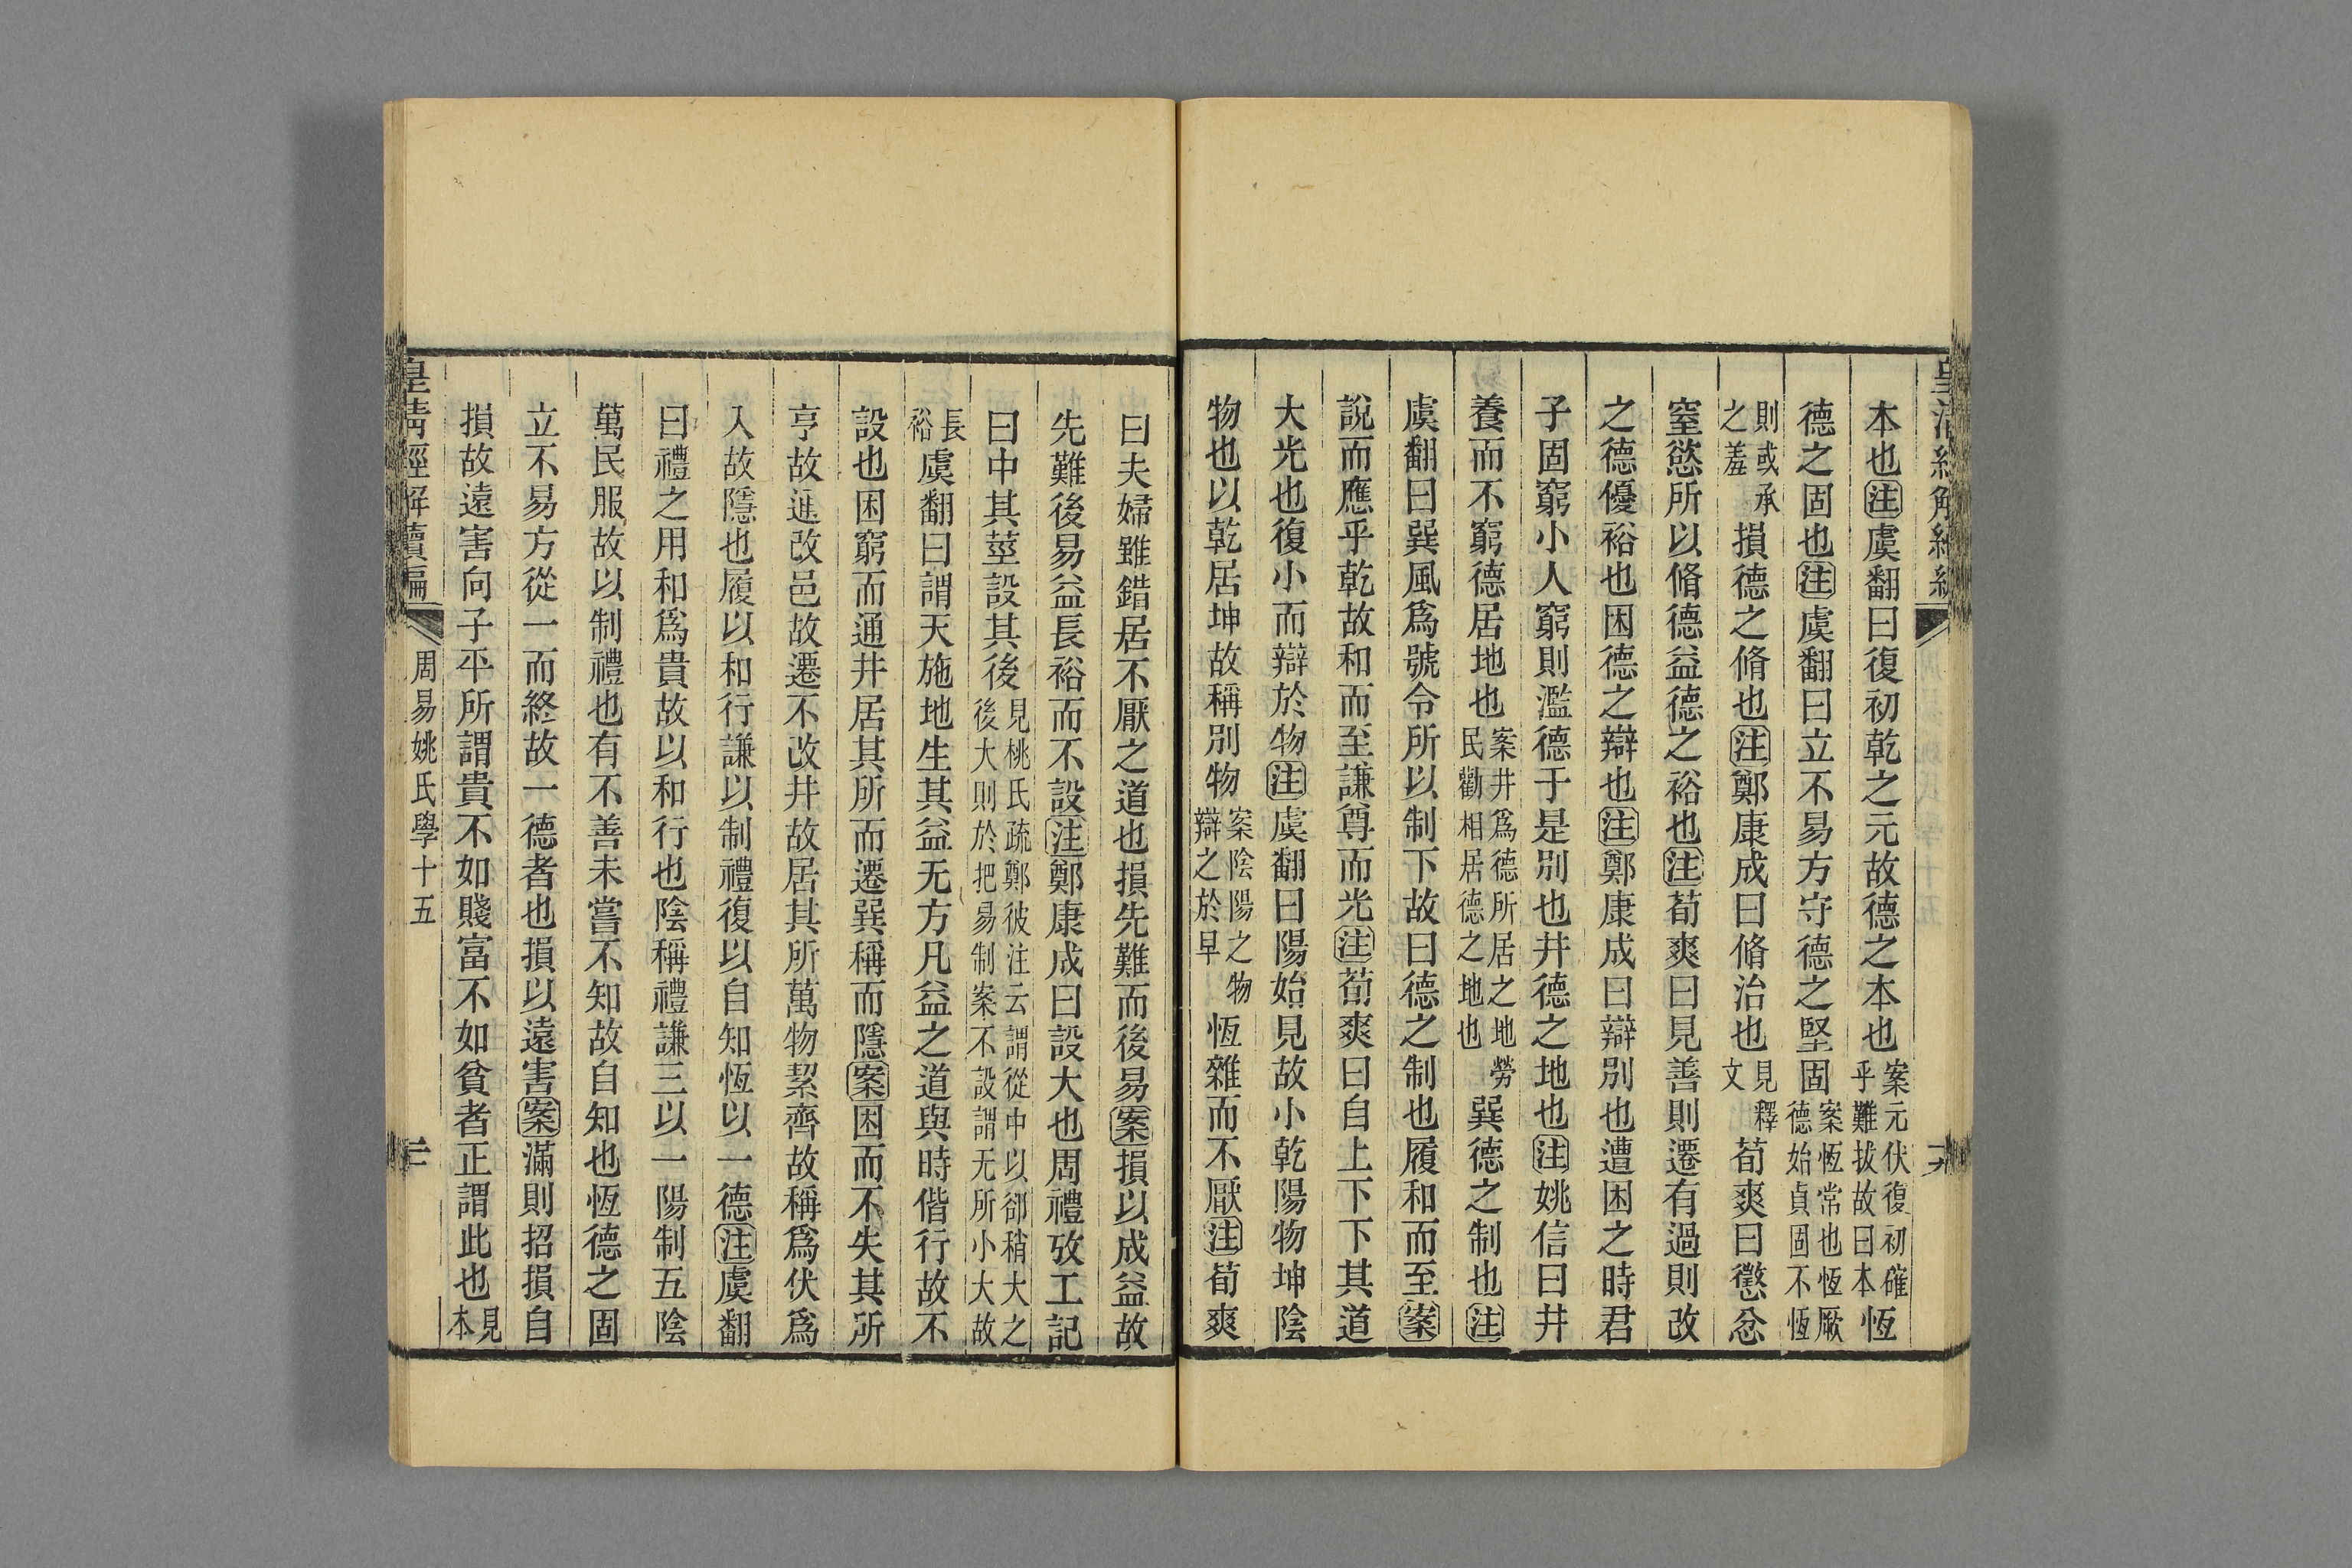 本也注虞翻曰復初乾之元故德之本也案元伏復初確乎難拔故曰本恆
德之固也注虞翻曰立不易方守德之堅固案恆常也恆厥德始貞固不恆
則或承之羞損德之脩也注鄭康成曰脩治也見釋文荀爽曰懲忿
窒慾所以脩德益德之裕也注荀爽曰見善則遷有過則改
之德優裕也困德之辯也注鄭康成曰辯別也遭困之時君
子固窮小人窮則濫德于是別也井德之地也注姚信曰井
養而不窮德居地也案井爲德所居之地勞民勸相居德之地也巽德之制也注
虞翻曰巽風爲號令所以制下故曰德之制也履和而至案
說而應乎乾故和而至謙尊而光注荀爽曰自上下下其道
大光也復小而辯於物注虞翻曰陽始見故小乾陽物坤陰
物也以乾居坤故稱別物案陰陽之物辯之於早恆雜而不厭注荀爽
曰夫婦雖錯居不厭之道也損先難而後易案損以成益故
先難後易益長裕而不設注鄭康成曰設大也周禮攷工記
曰中其莖設其後見桃氏疏鄭彼注云謂從中以郤稍大之後大則於把易制案不設謂无所小大故
長裕虞翻曰謂天施地生其益无方凡益之道與時偕行故不
設也困窮而通井居其所而遷巽稱而隱案困而不失其所
亨故進改邑故遷不改井故居其所萬物絜齊故稱爲伏爲
入故隱也履以和行謙以制禮復以自知恆以一德注虞翻
曰禮之用和爲貴故以和行也陰稱禮謙三以一陽制五陰
萬民服故以制禮也有不善未嘗不知故自知也恆德之固
立不易方從一而終故一德者也損以遠害案滿則招損自
損故遠害向子平所謂貴不如賤富不如貧者正謂此也見本
皇清經解續編
周易姚氏學十五